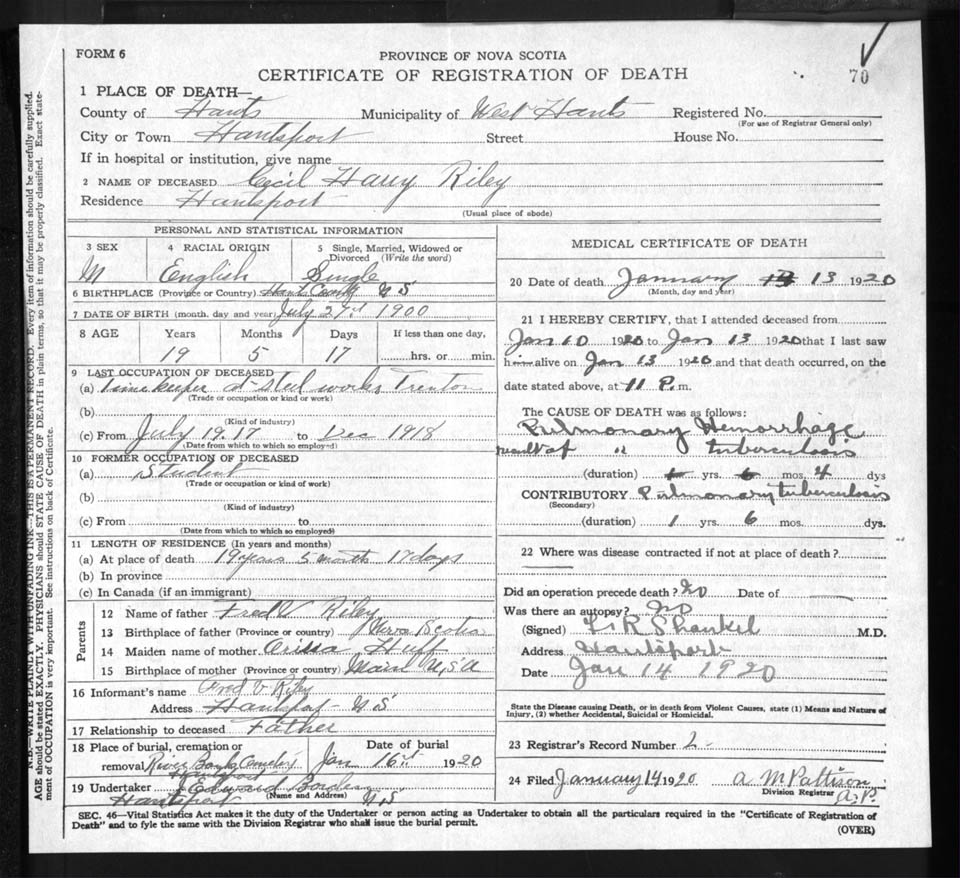 FORM 6
PROVINCE OF NOVA SCOTIA
CERTIFICATE OF REGISTRATION OF DEATH
70
1 PLACE OF DEATH—
County of Hants Municipality of West Hants Registered No.
(For use of Registrar General only)
City or Town Hantsport Street House No.
If in hospital or institution, give name
2 NAME OF DECEASED Cecil Harry Riley
Residence Hantsport
(Usual place of abode)
PERSONAL AND STATISTICAL INFORMATION
3 SEX 4 RACIAL ORIGIN 5 Single, Married, Widowed or Divorced (Write the word)
M English Single
6 BIRTHPLACE (Province or Country) Hants County N S
7 DATE OF BIRTH (month, day and year) July 27th 1900
8 AGE Years Months Days If less than one day,
19 5 17 hrs. or min.
9 LAST OCCUPATION OF DECEASED
(a) Timekeeper at steel works, Trenton
(Trade or occupation or kind of work)
(b)
(Kind of industry)
(c) From July 19.17 to Dec 1918
(Date from which to which so employed)
10 FORMER OCCUPATION OF DECEASED
(a) Student
(Trade or occupation or kind of work)
(b)
(Kind of industry)
(c) From to
(Date from which to which so employed)
11 LENGTH OF RESIDENCE (In years and months)
(a) At place of death 19 years 5 month 17 days
(b) In province
(c) In Canada (if an immigrant)
Parents
12 Name of father Fred V Riley
13 Birthplace of father (Province or country) Nova Scotia
14 Maiden name of mother Orissa Huff
15 Birthplace of mother (Province or Country) Main U,S,A
16 Informant's name Fred V Riley
Address Hantsport - N S
17 Relationship to deceased Father
18 Place of burial, cremation or removal River Bank Cemetery Hantsport
Date of burial
Jan 16th 1920
19 Undertaker J Edward Borden
(Name and Address)
Hantsport N S
MEDICAL CERTIFICATE OF DEATH
20 Date of death January 13 1920
(Month, day and year)
21 I HEREBY CERTIFY, that I attended deceased from
Jan 10 1920 to Jan 13 1920 that I last saw
him alive on Jan 13 1920 and that death occurred, on the
date stated above, at 11 P. m.
The CAUSE OF DEATH was as follows:
Pulmonary Hemorrhage
result of " tuberculosis
(duration) 1 yrs. 6 mos. 4 dys
CONTRIBUTORY Pulmonary tuberculosis
(Secondary)
(duration) 1 yrs. 6 mos. dys.
22 Where was disease contracted if not at place of death?
Did an operation precede death? No Date of
Was there an autopsy? No
(Signed) F. R Shankel M.D.
Address Hantsport
Date Jan 14 1920
State the Disease causing Death, or in death from Violent Causes, state (1) Means and Nature of
Injury, (2) whether Accidental, Suicidal or Homicidal.
23 Registrar's Record Number 2
24 Filed January 14 1920 A. M Pattison
Division Registrar
A.P.
SEC. 46—Vital Statistics Act makes it the duty of the Undertaker or person acting as Undertaker to obtain all the particulars required in the "Certificate of Registration of
Death" and to fyle the same with the Division Registrar who shall issue the burial permit.
(OVER)
N.B.—WRITE PLAINLY, WITH UNFADING INK—THIS IS A PERMANENT RECORD. Every item of information should be carefully supplied.
AGE should be stated EXACTLY. PHYSICIANS should STATE CAUSE OF DEATH in plain terms, so that it may be properly classified. Exact state-
ment of OCCUPATION is very important. See instructions on back of Certificate.